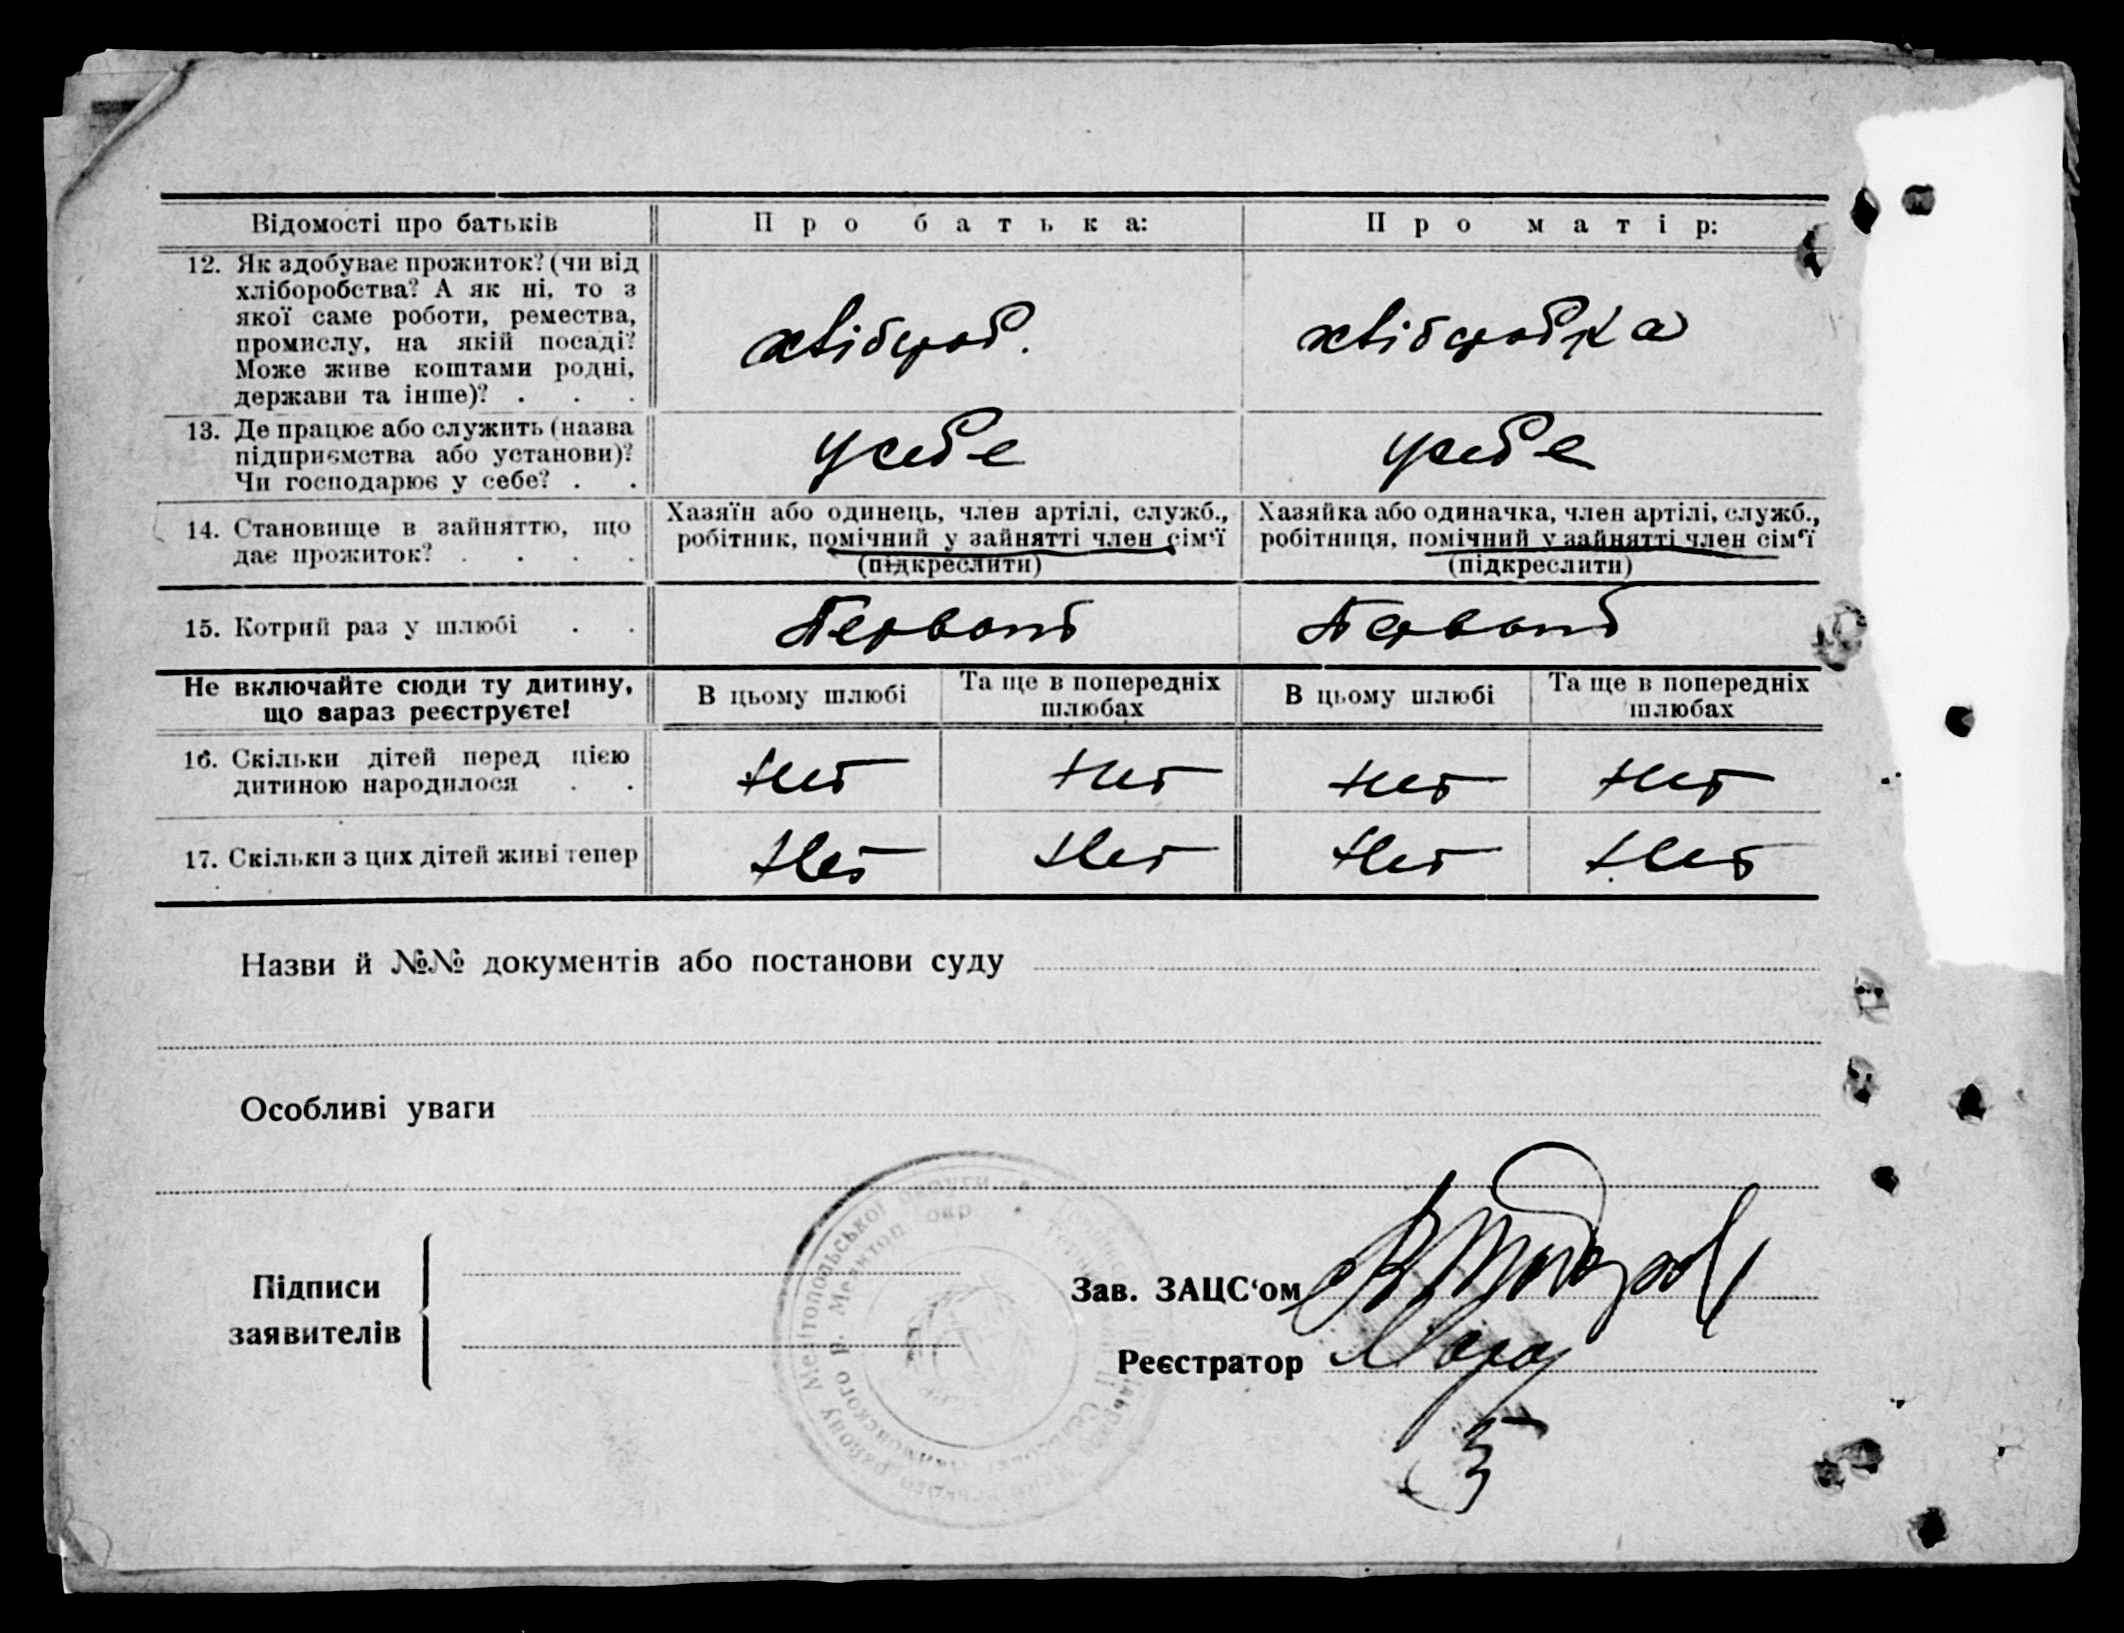 Відомості про батьків
Про батька:
Про матір:
12. Як здобуває прожиток? (чи від
хліборобства? А як ні, то з
якої саме роботи, ремества,
промислу, на якій посаді?
Може живе коштами родні,
держави та інше)? . . .
хлібороб.
хліборобка
13. Де працює або служить (назва
підприємства або установи)?
Чи господарює у себе? . .
у себе
у себе
14. Становище в зайняттю, що
дає прожиток? . . . .
Хазяїн або одинець, член артілі, служб.,
робітник, помічний у зайнятті член сім‘ї
(підкреслити)
Хазяйка або одиначка, член артілі, служб.,
робітниця, помічний у зайнятті член сім‘ї
(підкреслити)
15. Котрий раз у шлюбі . .
Первой
Первой
Не включайте сюди ту дитину,
що зараз реєструєте!
В цьому шлюбі
Та ще в попередніх
шлюбах
В цьому шлюбі
Та ще в попередніх
шлюбах
16. Скільки дітей перед цією
дитиною народилося . .
Нет
Нет
Нет
Нет
17. Скільки з цих дітей живі тепер
Нет
Нет
Нет
Нет
Назви й №№ документів або постанови суду
Особливі уваги
Підписи
заявителів
Зав. ЗАЦС‘ом
Реєстратор
району Мелітопольської округи
Мелктоп окр.